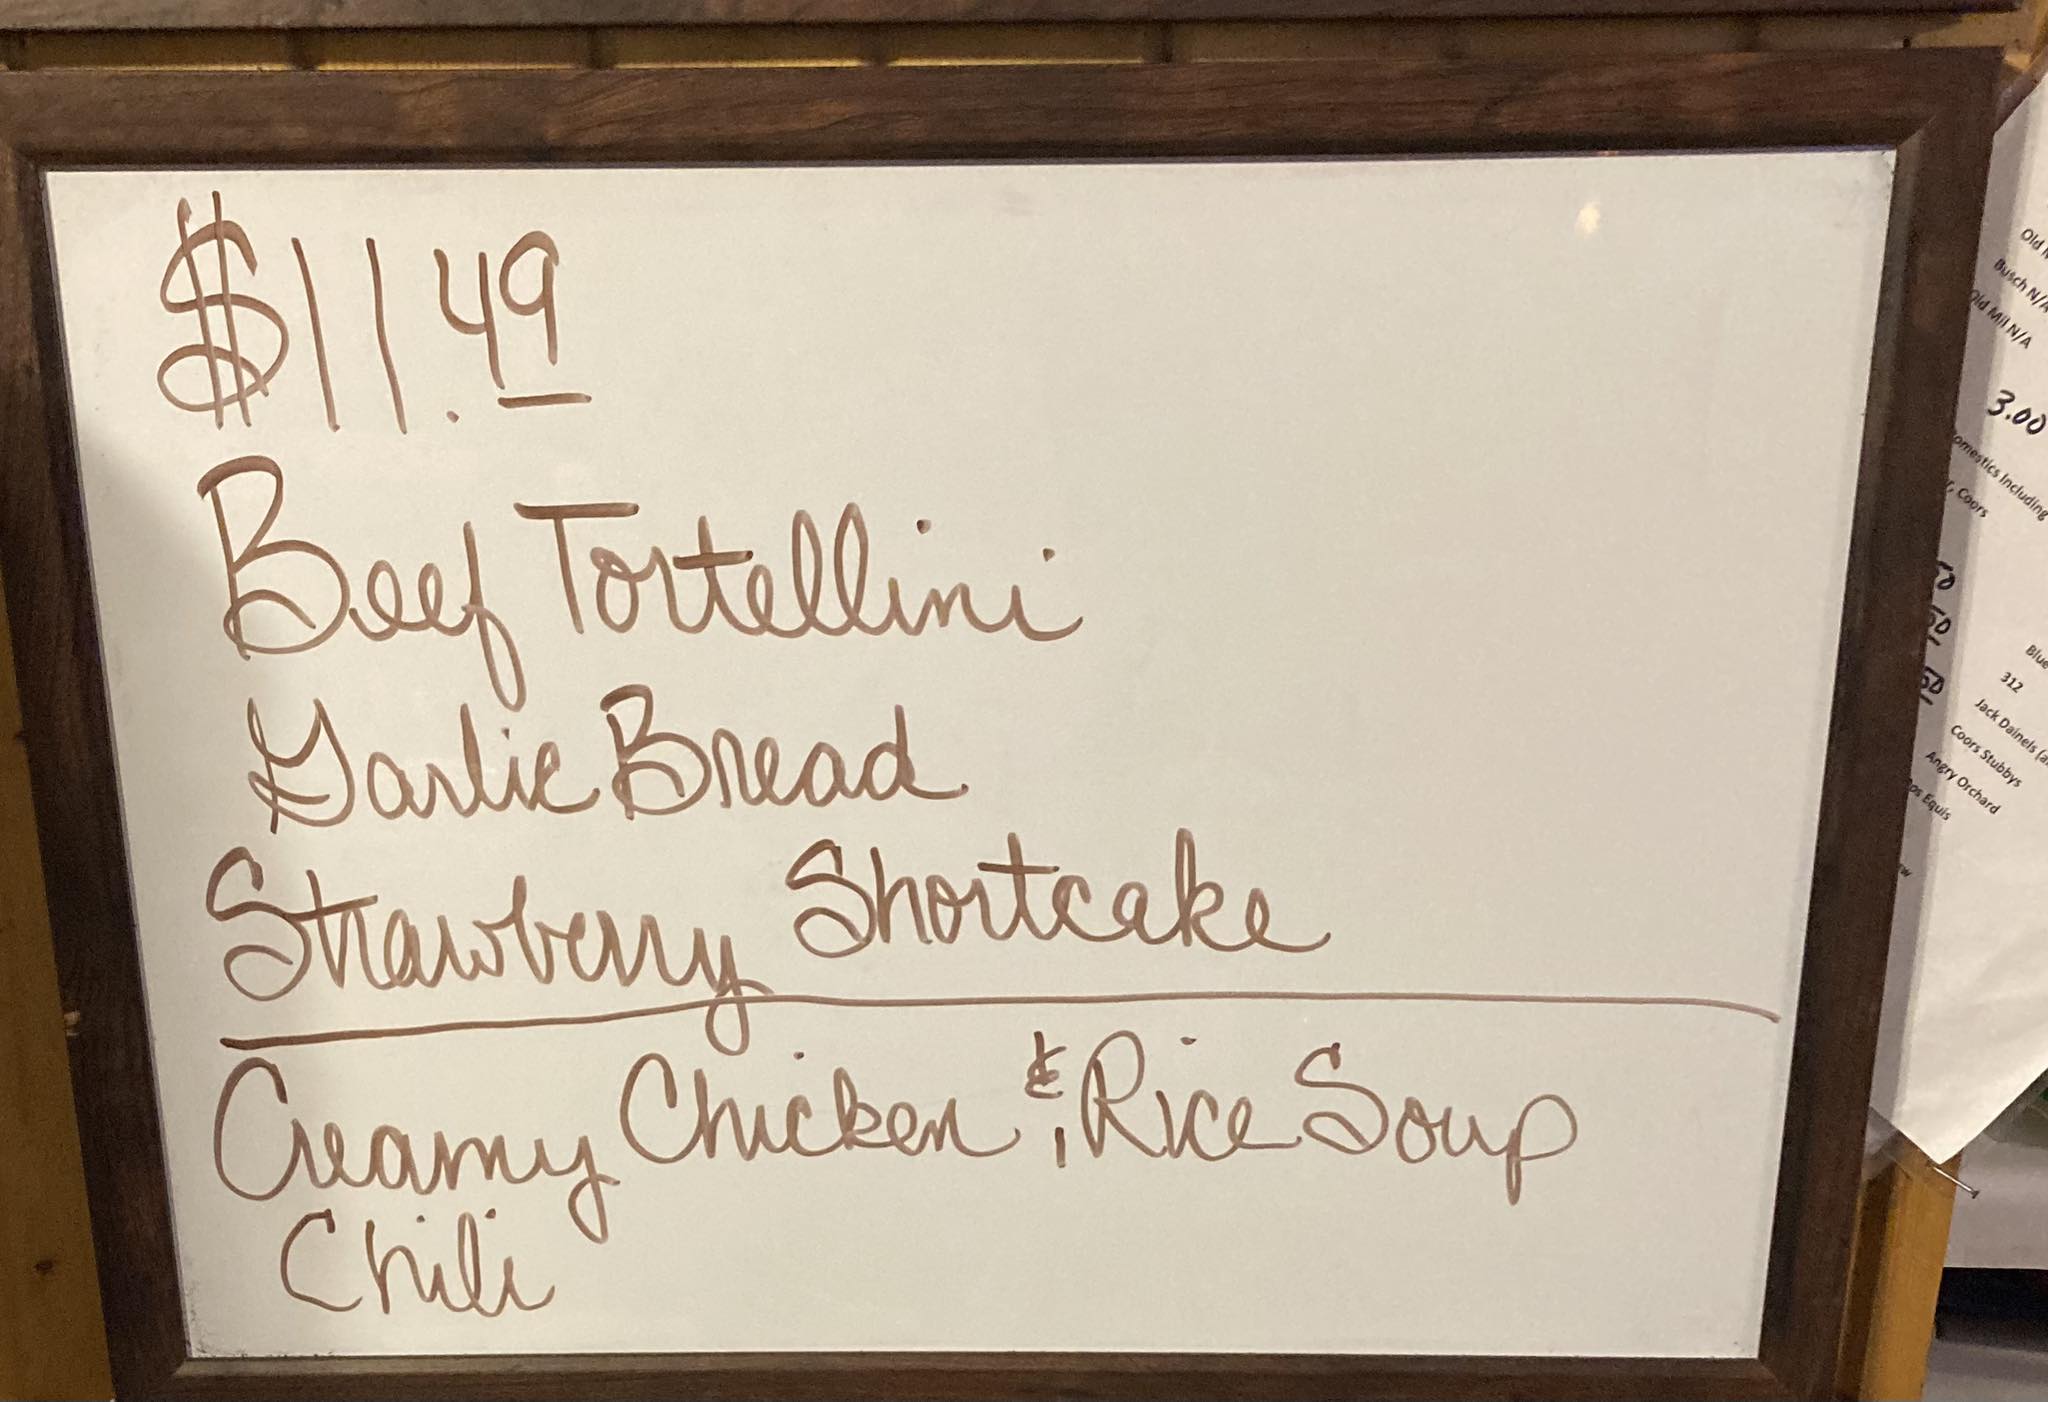 $11.49
Beef Tortellini
Garlic Bread
Strawberry Shortcake
Creamy Chicken & Rice Soup
Chili
Old
Busch N/A
Old Mil N/A
3.00
Domestics Including
Coors
50
50
50
Blue
312
Jack Dainels
Coors Stubbys
Angry Orchard
Dos Equis